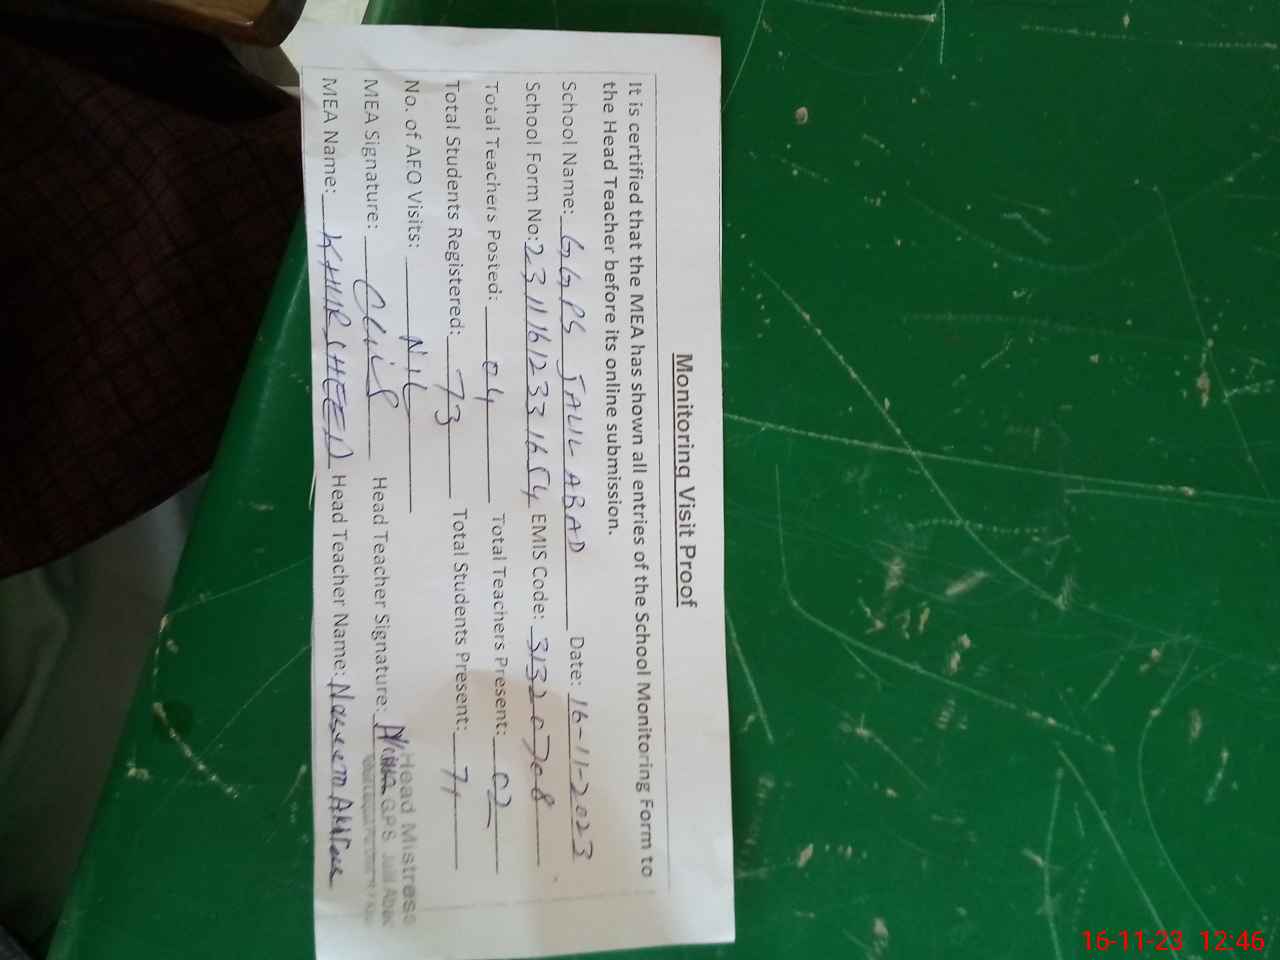 Monitoring Visit Proof
It is certified that the MEA has shown all entries of the School Monitoring Form to
the Head Teacher before its online submission.
School Name: GGPS JALIL ABAD Date: 16-11-2023
School Form No: 23111612331654 EMIS Code: 31320708
Total Teachers Posted: 04 Total Teachers Present: 02
Total Students Registered: 73 Total Students Present: 71
No. of AFO Visits: Nil
MEA Signature: Head Teacher Signature:
Head Mistress
G.P.S Jalil Abad
MEA Name: KHURSHEED Head Teacher Name: Naseem Akhtar
16-11-23 12:46